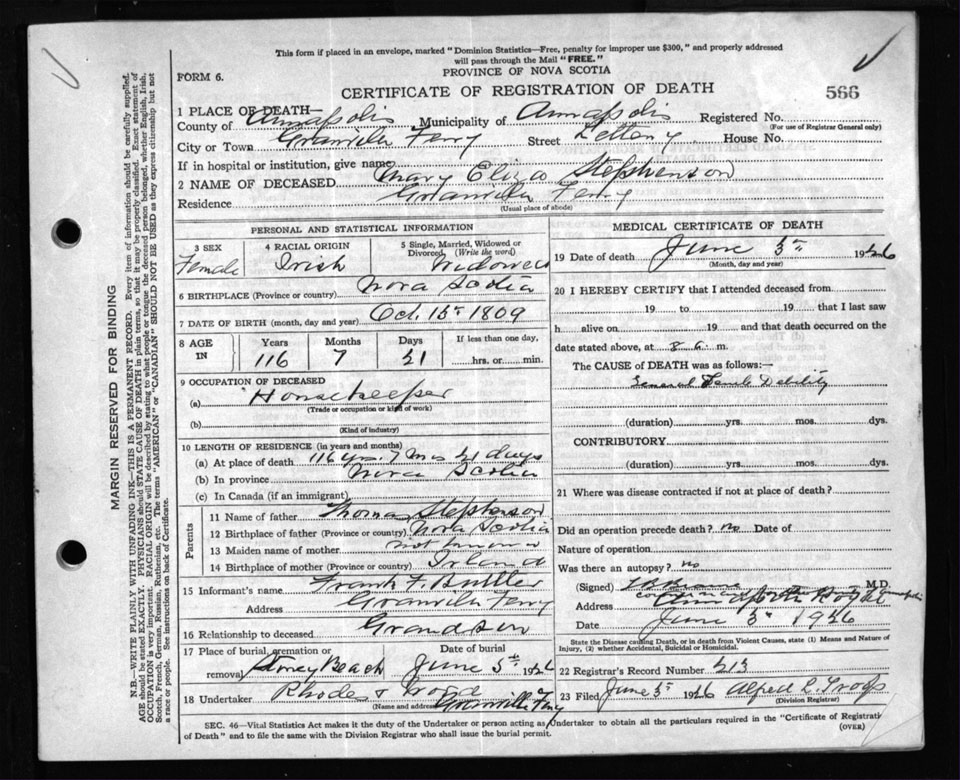 This form if placed in an envelope, marked "Dominion Statistics—Free, penalty for improper use $300," and properly addressed
will pass through the Mail "FREE."
PROVINCE OF NOVA SCOTIA
FORM 6.
CERTIFICATE OF REGISTRATION OF DEATH
566
1 PLACE OF DEATH—
County of Annapolis Municipality of Annapolis Registered No.
(For use of Registrar General only)
City or Town Granville Ferry Street House No.
If in hospital or institution, give name
2 NAME OF DECEASED Mary Eliza Stephenson
Residence Granville Ferry
(Usual place of abode)
PERSONAL AND STATISTICAL INFORMATION
3 SEX
Female
4 RACIAL ORIGIN
Irish
5 Single, Married, Widowed or
Divorced, (Write the word)
Widowed
6 BIRTHPLACE (Province or country) Nova Scotia
7 DATE OF BIRTH (month, day and year) Oct. 15th 1809
8 AGE
IN
Years Months Days If less than one day,
116 7 21 hrs. or min.
9 OCCUPATION OF DECEASED
(a) Housekeeper
(Trade or occupation or kind of work)
(b)
(Kind of industry)
10 LENGTH OF RESIDENCE (in years and months)
(a) At place of death 116 yrs. 7 mos 21 days
(b) In province Nova Scotia
(c) In Canada (if an immigrant)
Parents
11 Name of father Thomas Stephenson
12 Birthplace of father (Province or country) Nova Scotia
13 Maiden name of mother not known
14 Birthplace of mother (Province or country) Irland
15 Informant's name Frank F. Butler
Address Granville Ferry
16 Relationship to deceased Grandson
17 Place of burial, cremation or
removal Stoney Beach
Date of burial
June 5th 1926
18 Undertaker Rhodes & Wood
(Name and address) Granville Ferry
MEDICAL CERTIFICATE OF DEATH
19 Date of death June 3rd 1926
(Month, day and year)
20 I HEREBY CERTIFY that I attended deceased from
19 to 19 that I last saw
h alive on 19 and that death occurred on
date stated above, at 8 a. m.
The CAUSE OF DEATH was as follows:—
General Senile Debility
(duration) yrs. mos. dys.
CONTRIBUTORY
(duration) yrs. mos. dys.
21 Where was disease contracted if not at place of death?
Did an operation precede death? no Date of
Nature of operation
Was there an autopsy? no
(Signed) M.D.
Address
Date June 3rd 1926
State the Disease causing Death, or in death from Violent Causes, state (1) Means and Nature of
Injury, (2) whether Accidental, Suicidal or Homicidal.
22 Registrar's Record Number 213
23 Filed June 3rd 1926 Alfred
(Division Registrar)
SEC. 46—Vital Statistics Act makes it the duty of the Undertaker or person acting as Undertaker to obtain all the particulars required in the "Certificate of Registrati
of Death" and to file the same with the Division Registrar who shall issue the burial permit.
(OVER)
MARGIN RESERVED FOR BINDING
N.B.—WRITE PLAINLY WITH UNFADING INK—THIS IS A PERMANENT RECORD. Every item of information should be carefully supplied.
AGE should be stated EXACTLY. PHYSICIANS should STATE CAUSE OF DEATH in plain terms, so that it may be properly classified. Exact statement of
OCCUPATION is very important. RACIAL ORIGIN will be described by stating to what people or tongue the deceased person belonged, whether English, Irish,
Scotch, French, German, Russian, Ruthenian, etc. The terms "AMERICAN" or "CANADIAN" SHOULD NOT BE USED as they express citizenship but not
a race or people. See instructions on back of Certificate.